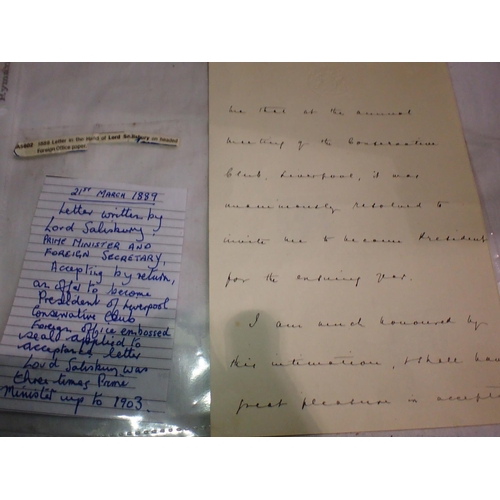 1889 Letter in the hand of Lord Salisbury on headed
Foreign Office paper
21ST MARCH 1889
Letter written by
Lord Salisbury.
PRIME MINISTER AND
FOREIGN SECRETARY,
Accepting by return,
an offer to become
President of Liverpool
Conservative Club
Foreign office embossed
seal applied to
acceptance letter
Lord Salisbury was
three times Prime
Minister up to 1903.
me that at the annual
meeting of the Conservative
Club, Liverpool, it was
unanimously resolved to
invite me to become President
for the ensuing year.
I am much honoured by
this intimation, & shall have
great pleasure in